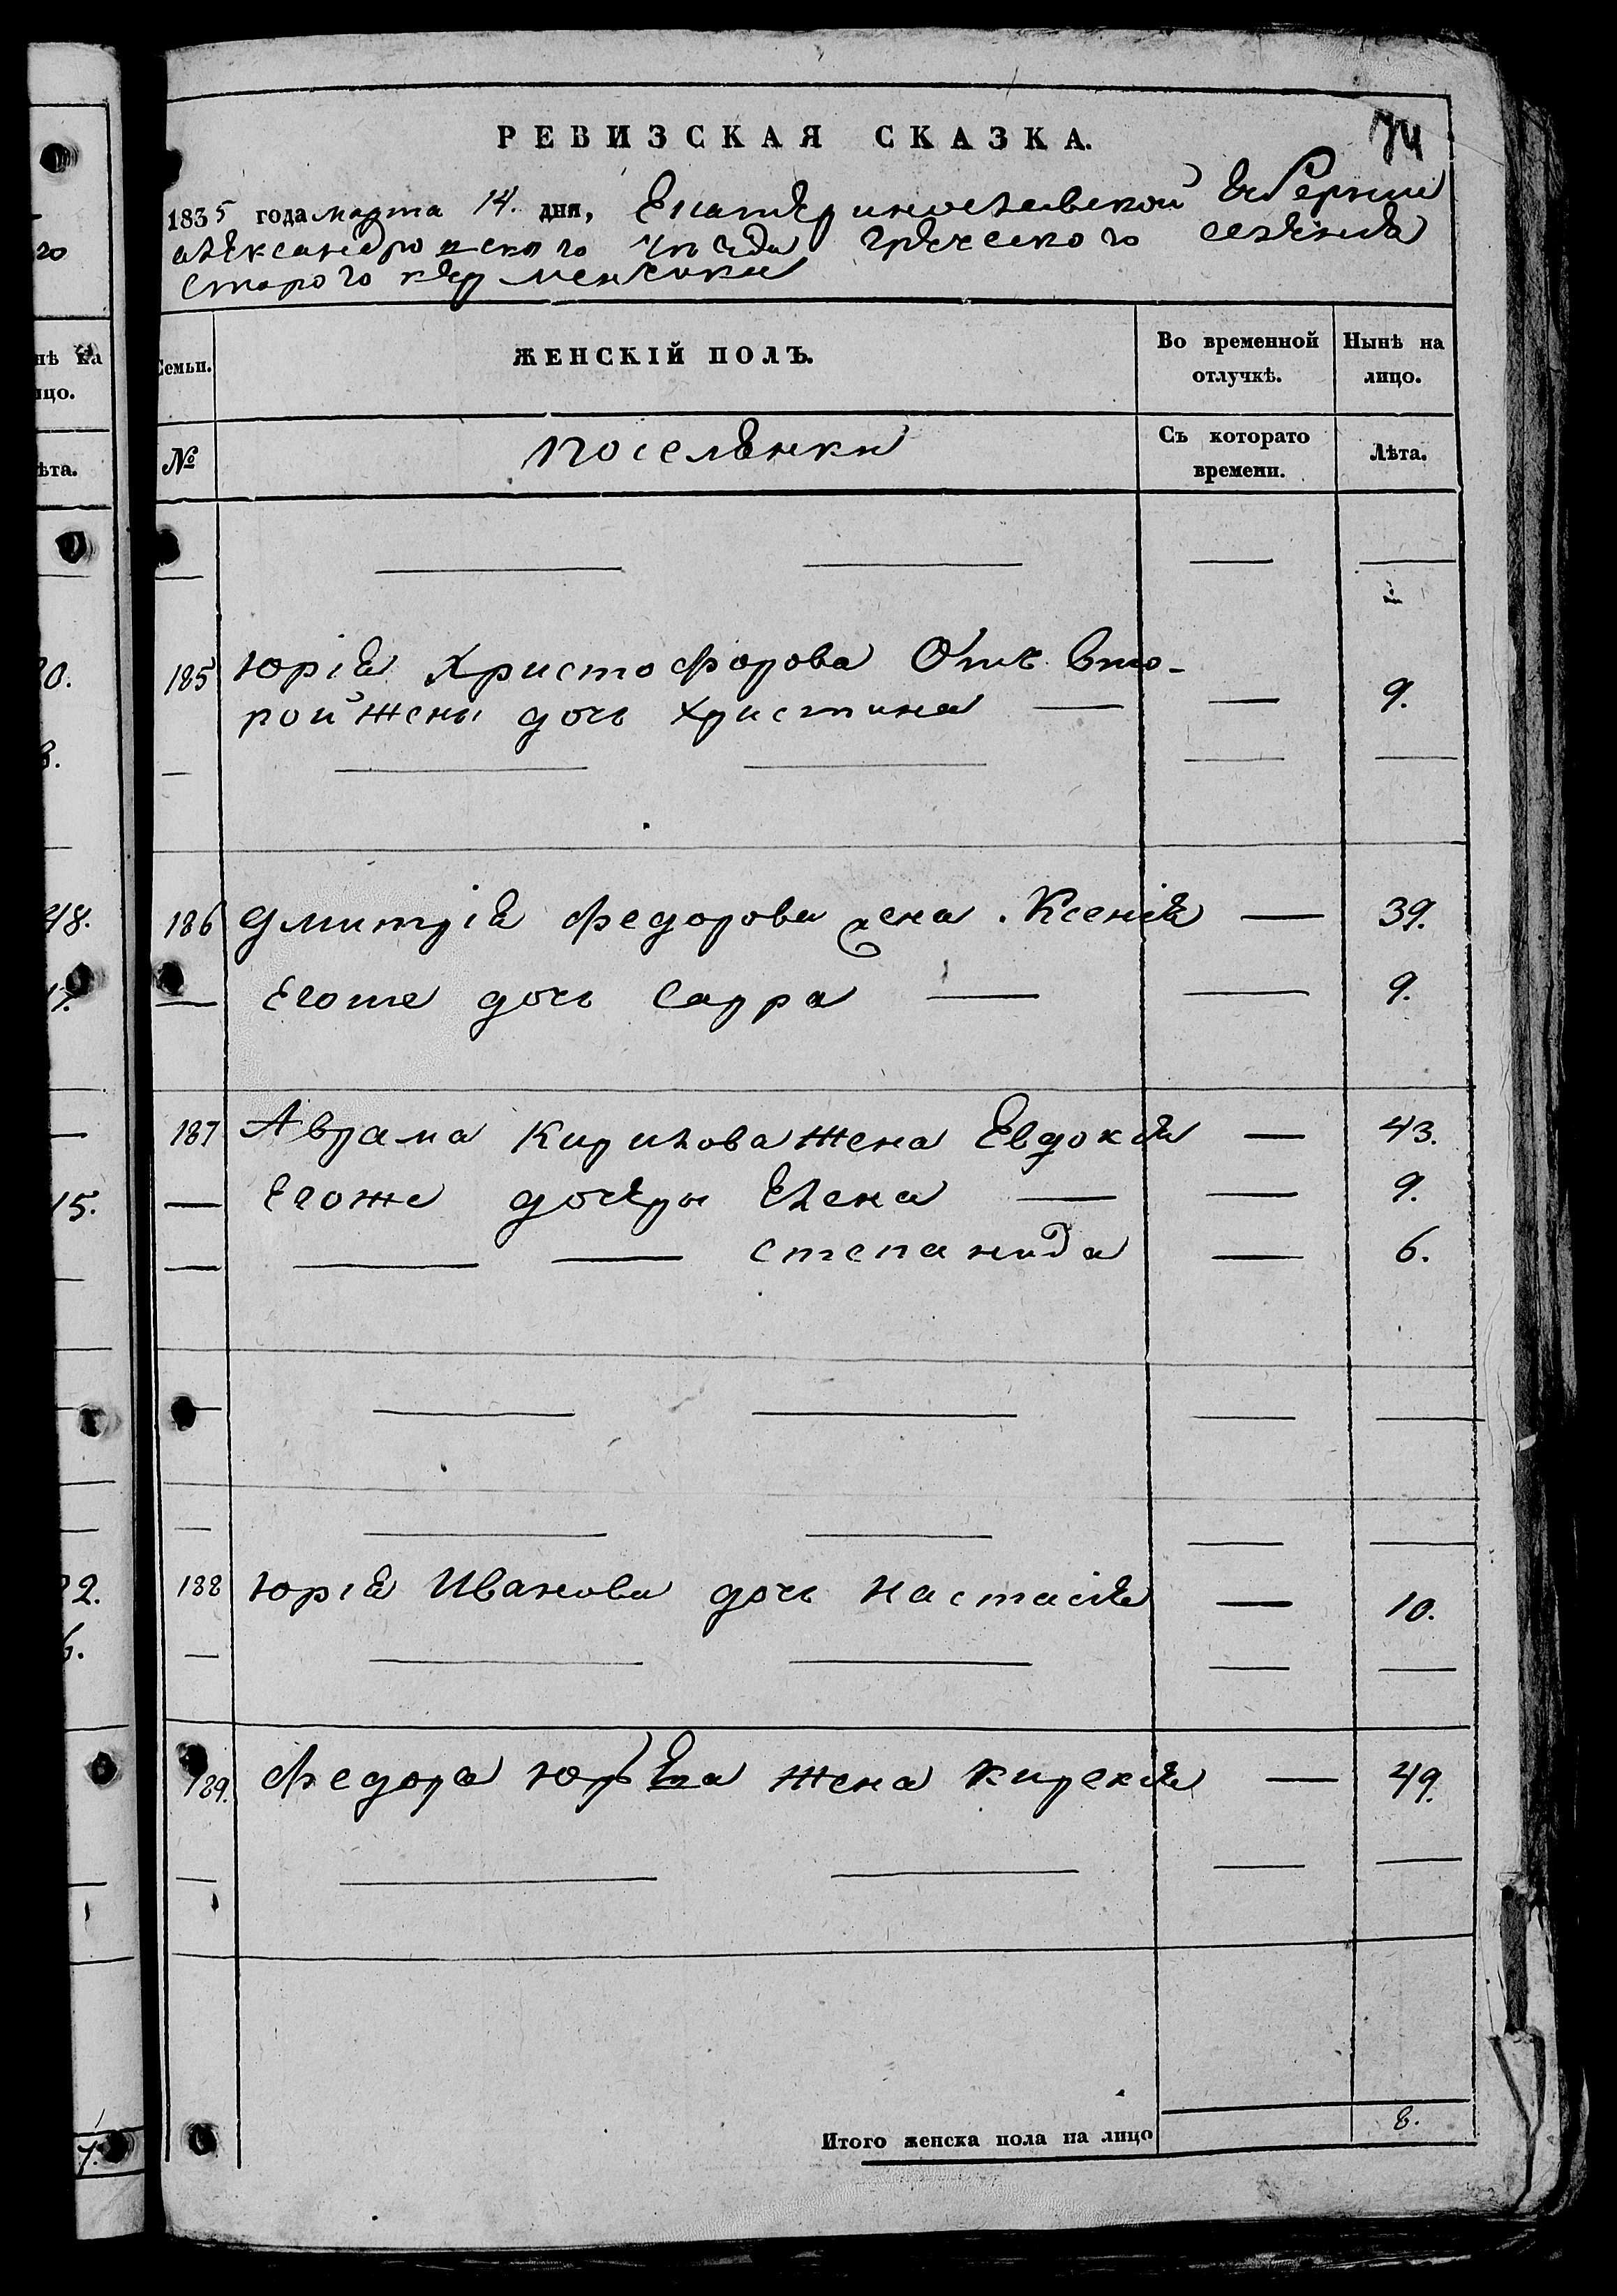 РЕВИЗСКАЯ СКАЗКА.
74
1835 года марта 14. дня, Екатеринославской Губернии
Александровского уезда греческого селения
Старого керменчика
Семьи.
ЖЕНСКІЙ ПОЛЪ.
Во временной отлучкѣ.
Нынѣ на лицо.
№
поселянки
Съ которато времени.
Лѣта.
185 Юрія Христофорова Отъ вто-
рой жены дочь Христина — — 9.
186 Дмитрія Федорова жена Ксенія — 39.
— Егоже дочь Сарра — — 9.
187 Аврама Кирилова жена Евдокія — 43.
— Егоже дочеры Елена — — 9.
— — — Степанида — 6.
188 Юрія Иванова дочь Настасія — 10.
— — — — —
189. Федора Юрьева жена Кирекія — 49.
— — — — —
Итого женска пола на лицо 8.
нѣ на
ицо.
ѣта.
48.
15.